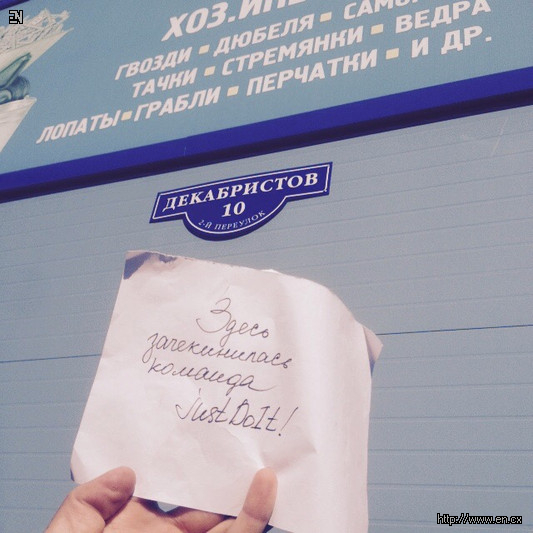 EN
ХОЗ.ИНВ
ГВОЗДИ ▪ ДЮБЕЛЯ ▪ САМО
ТАЧКИ ▪ СТРЕМЯНКИ ▪ ВЕДРА
ЛОПАТЫ ▪ ГРАБЛИ ▪ ПЕРЧАТКИ ▪ И ДР.
ДЕКАБРИСТОВ
10
2-Й ПЕРЕУЛОК
Здесь
зачекинилась
команда
JustDoIt!
http://www.en.cx